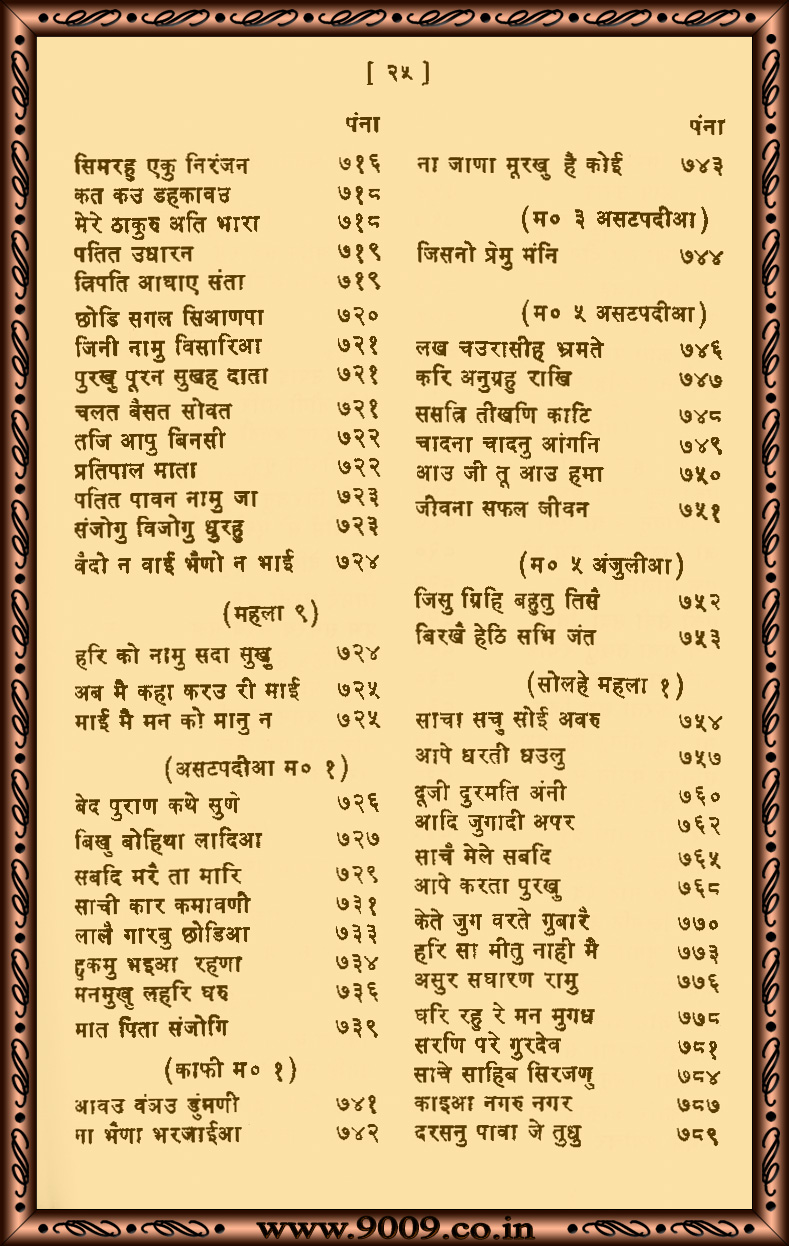 [ २५ ]
पंना
सिमरहु एकु निरंजन ७१६
कत कउ डहकावउ ७१८
मेरे ठाकुरु अति भारा ७१८
पतित उधारन ७१९
त्रिपति आघाए संता ७१९
छोडि सगल सिआणपा ७२०
जिनी नामु विसारिआ ७२१
पुरखु पूरन सुखह दाता ७२१
चलत बैसत सोवत ७२१
तजि आपु बिनसी ७२२
प्रतिपाल माता ७२२
पतित पावन नामु जा ७२३
संजोगु विजोगु धुरहु ७२३
वैदो न वाई भैणो न भाई ७२४
(महला ९)
हरि को नामु सदा सुखु ७२४
अब मै कहा करउ री माई ७२५
माई मै मन को मानु न ७२५
(असटपदीआ म० १)
बेद पुराण कथे सुणे ७२६
बिखु बोहिथा लादिआ ७२७
सबदि मरै ता मारि ७२९
साची कार कमावणी ७३१
लालै गारबु छोडिआ ७३३
हुकमु भइआ रहणा ७३४
मनमुखु लहरि घरु ७३६
मात पिता संजोगि ७३९
(काफी म० १)
आवउ वंञउ डुंमणी ७४१
ना भैणा भरजाईआ ७४२
पंना
ना जाणा मूरखु है कोई ७४३
(म० ३ असटपदीआ)
जिसनो प्रेमु मंनि ७४४
(म० ५ असटपदीआ)
लख चउरासीह भ्रमते ७४६
करि अनुग्रहु राखि ७४७
ससत्रि तीखणि काटि ७४८
चादना चादनु आंगनि ७४९
आउ जी तू आउ हमा ७५०
जीवना सफल जीवन ७५१
(म० ५ अंजुलीआ)
जिसु ग्रिहि बहुतु तिसै ७५२
बिरखै हेठि सभि जंत ७५३
(सोलहे महला १)
साचा सचु सोई अवरु ७५४
आपे धरती धउलु ७५७
दूजी दुरमति अंनी ७६०
आदि जुगादी अपर ७६२
साचै मेले सबदि ७६५
आपे करता पुरखु ७६८
केते जुग वरते गुबारै ७७०
हरि सा मीतु नाही मै ७७३
असुर सघारण रामु ७७६
घरि रहु रे मन मुगध ७७८
सरणि परे गुरदेव ७८१
साचे साहिब सिरजणु ७८४
काइआ नगरु नगर ७८७
दरसनु पावा जे तुधु ७८९
www.9009.co.in